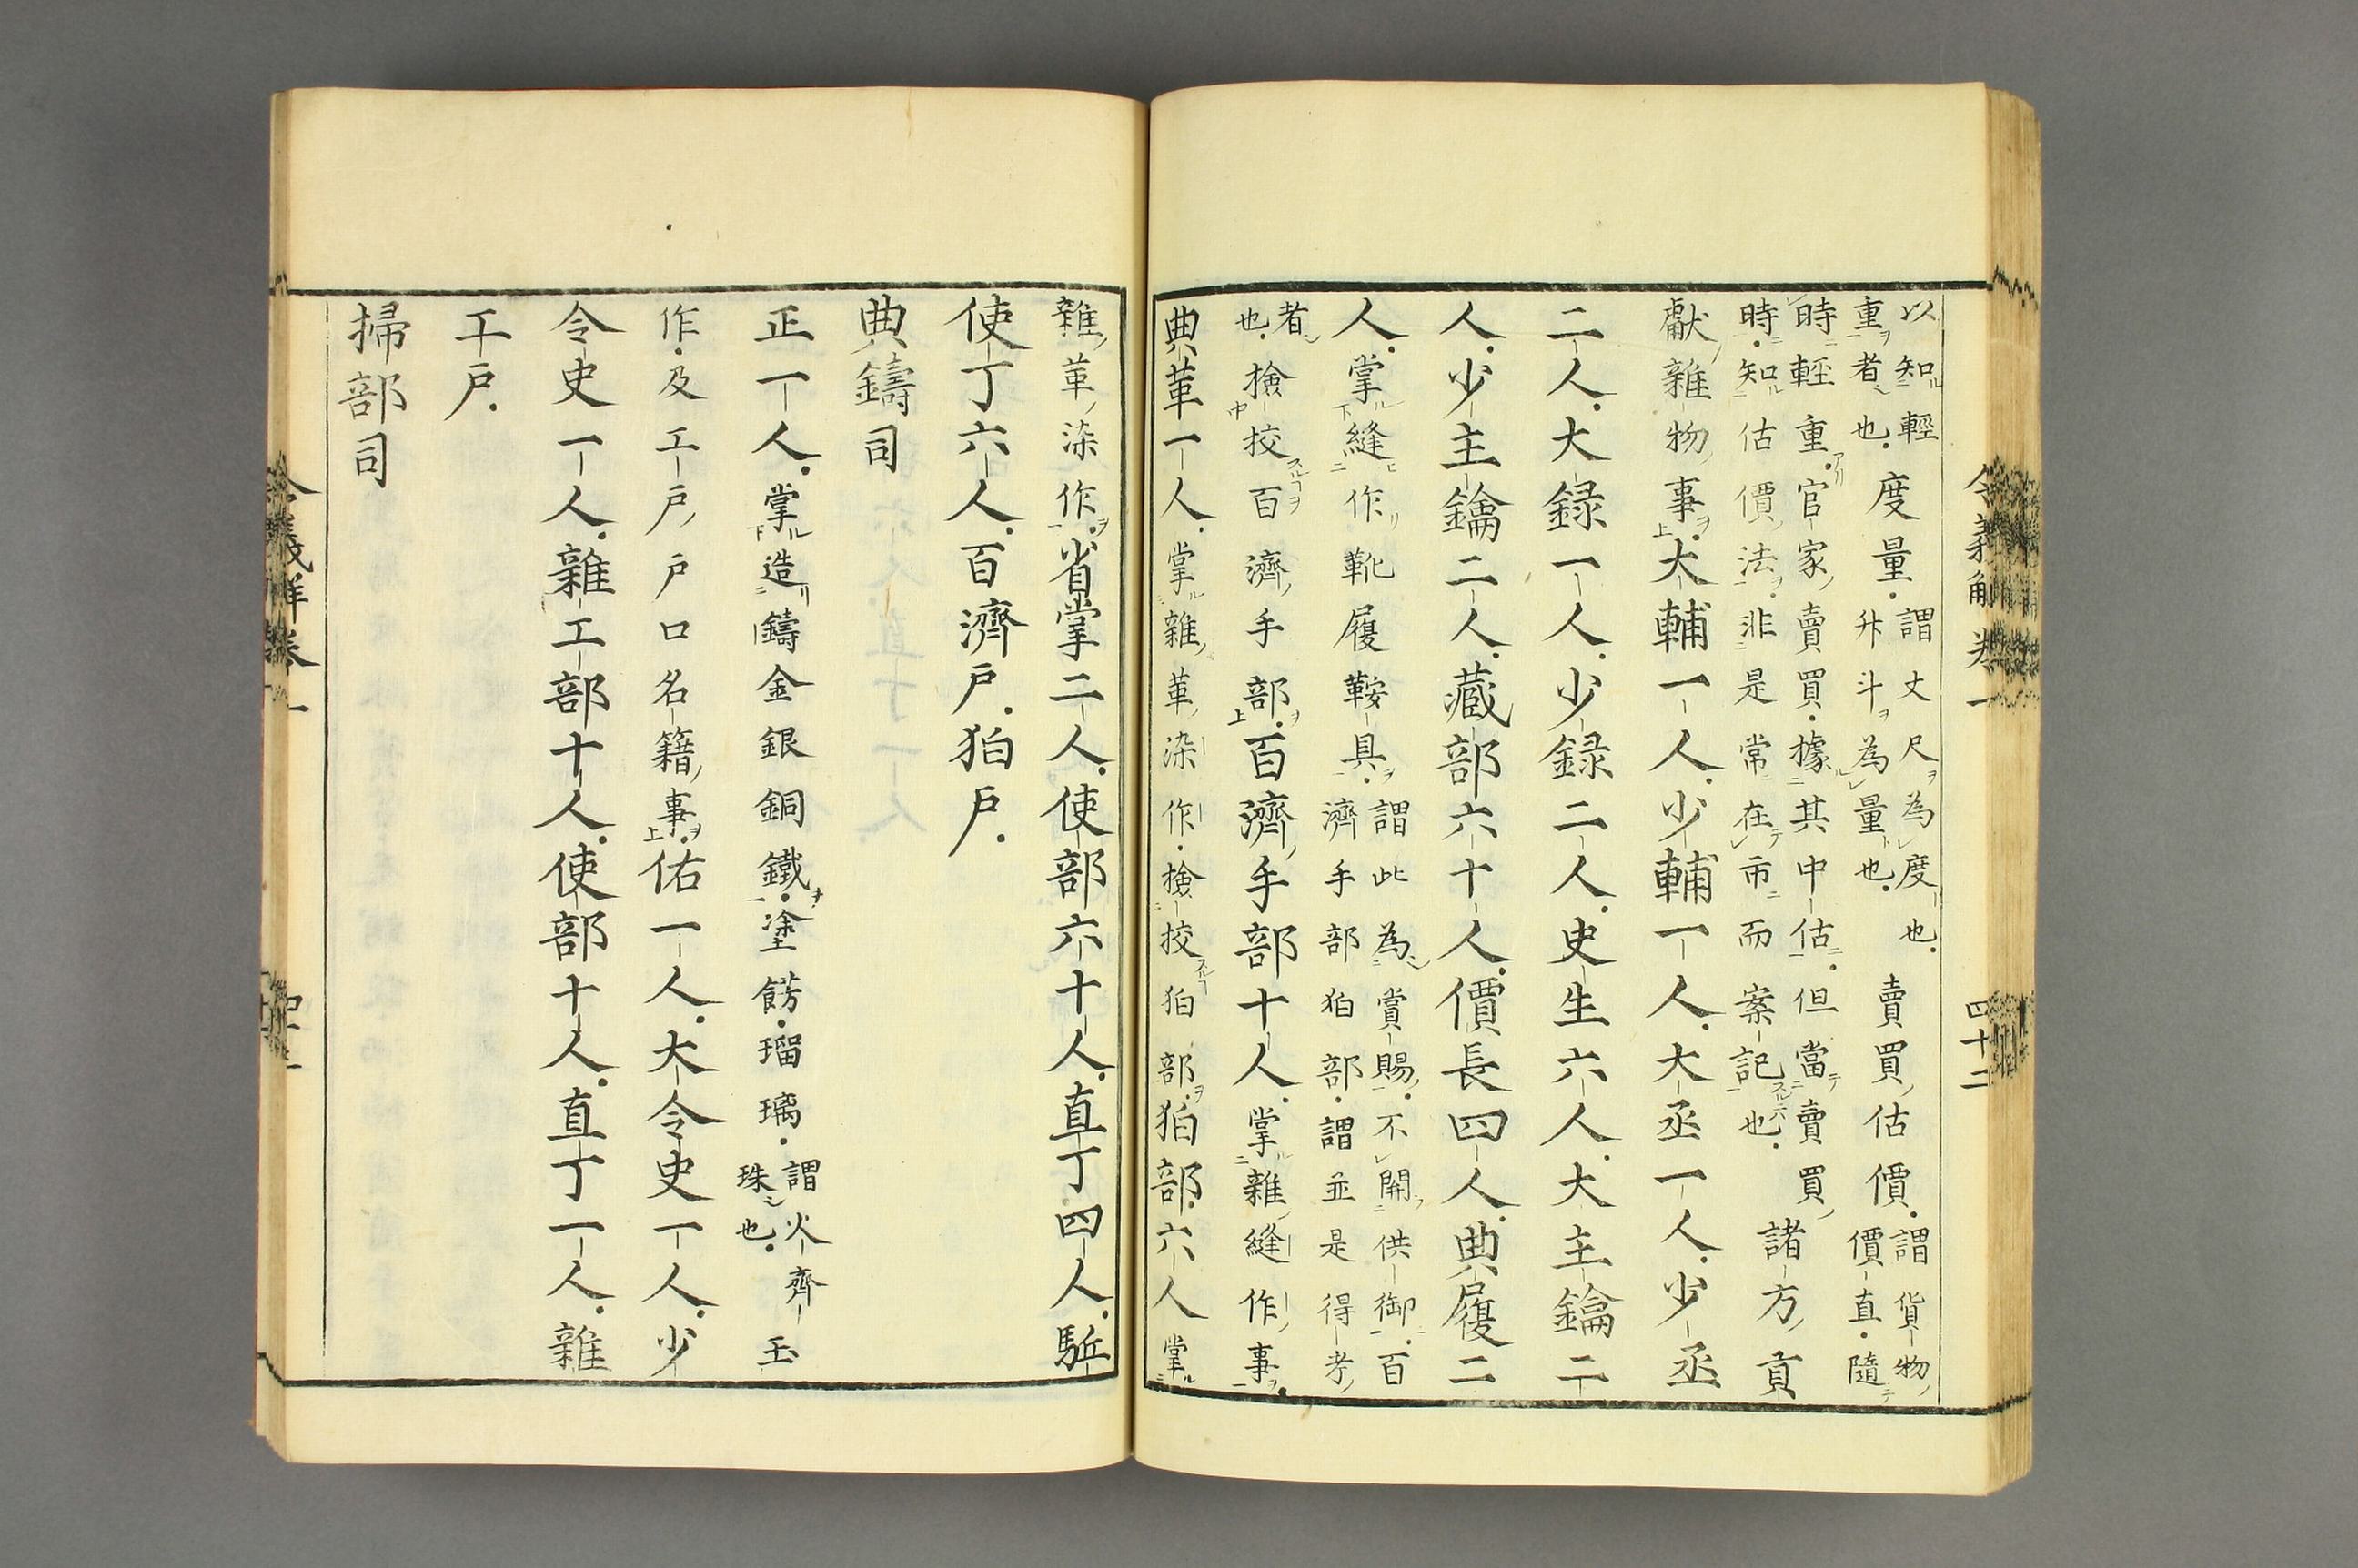 以知輕重者也。度量。謂丈尺為度也。升斗為量也。賣買估價。謂貨物價直。隨
時輕重。官家賣買。據其中估。但當賣買時。知估價法。非是常在市而案記也。諸方貢
獻雜物事。大輔一人。少輔一人。大丞一人。少丞
二人。大録一人。少録二人。史生六人。大主鑰二
人。少主鑰二人。藏部六十人。價長四人。典履二
人。掌縫作靴履鞍具。謂此為賞賜。不關供御。百濟手部狛部。謂並是得考
者也。撿挍百濟手部。百濟手部十人。掌雜縫作事。
典革一人。掌雜革染作。撿挍狛部。狛部六人掌
雜革染作。省掌二人。使部六十人。直丁四人。駈
使丁六人。百濟戸。狛戸。
典鑄司
正一人。掌造鑄金銀銅鐵。塗餝。瑠璃。謂火齊玉珠也。
作。及工戸戸口名籍事。佑一人。大令史一人。少
令史一人。雜工部十人。使部十人。直丁一人。雜
工戸。
掃部司
令義解卷一
四十二